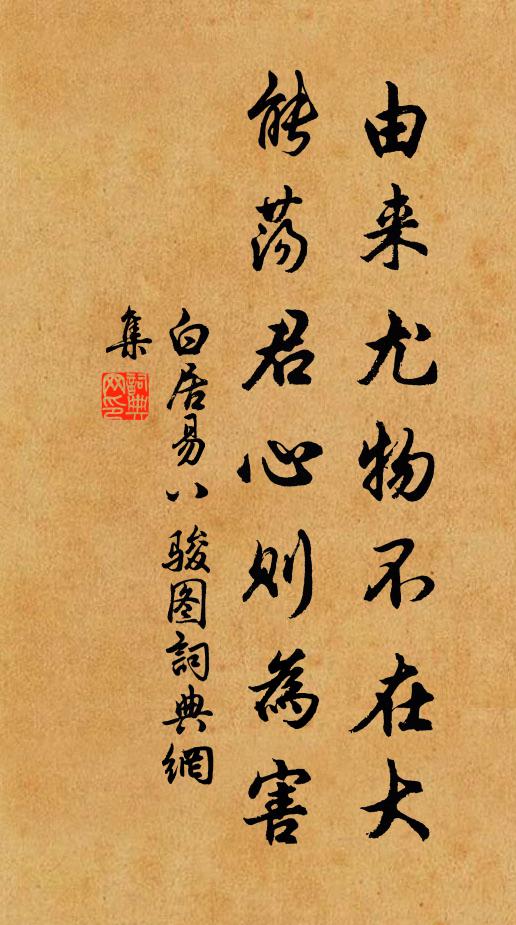 由来尤物不在大
能荡君心则為害
白居易八骏图詞典網
集
詞典网印